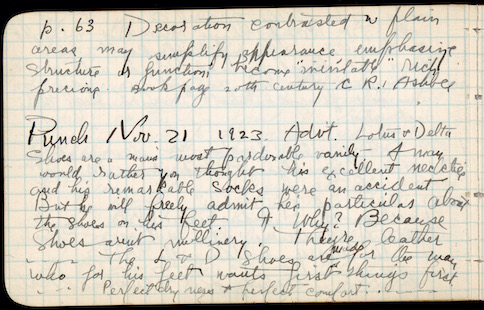 p. 63 Decoration contrasted w plain
areas may simplify appearance emphasise
structure or function become "inevitable" rich
precious. Book page 20th century C R. Ashbee
Punch Nov. 21 1923. Advt. Lotus & Delta
Shoes are a man's most pardonable vanity. A man
would rather you thought his excellent necktie
and his remarkable socks were an accident
But he will freely admit he's particular about
the shoes on his feet ¶ Why? Because
shoes aren't millinery. They're leather
- - - The L & D shoes are made for the man
who for his feet wants first things first
- - - Perfect dryness & perfect comfort. - - -